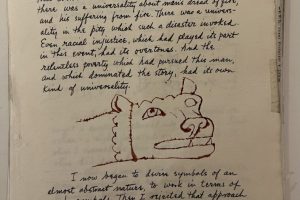 there was a universality about man's dread of fire,
and his suffering from fire. There was a univers-
ality in the pity which such a disaster invokes.
Even racial injustice, which had played its part
in this event, had its overtones. And the
relentless poverty which had pursued this man,
and which dominated the story, had its own
kind of universality.
I now began to devise symbols of an
almost abstract nature, to work in terms of
symbols. Then I rejected that approach